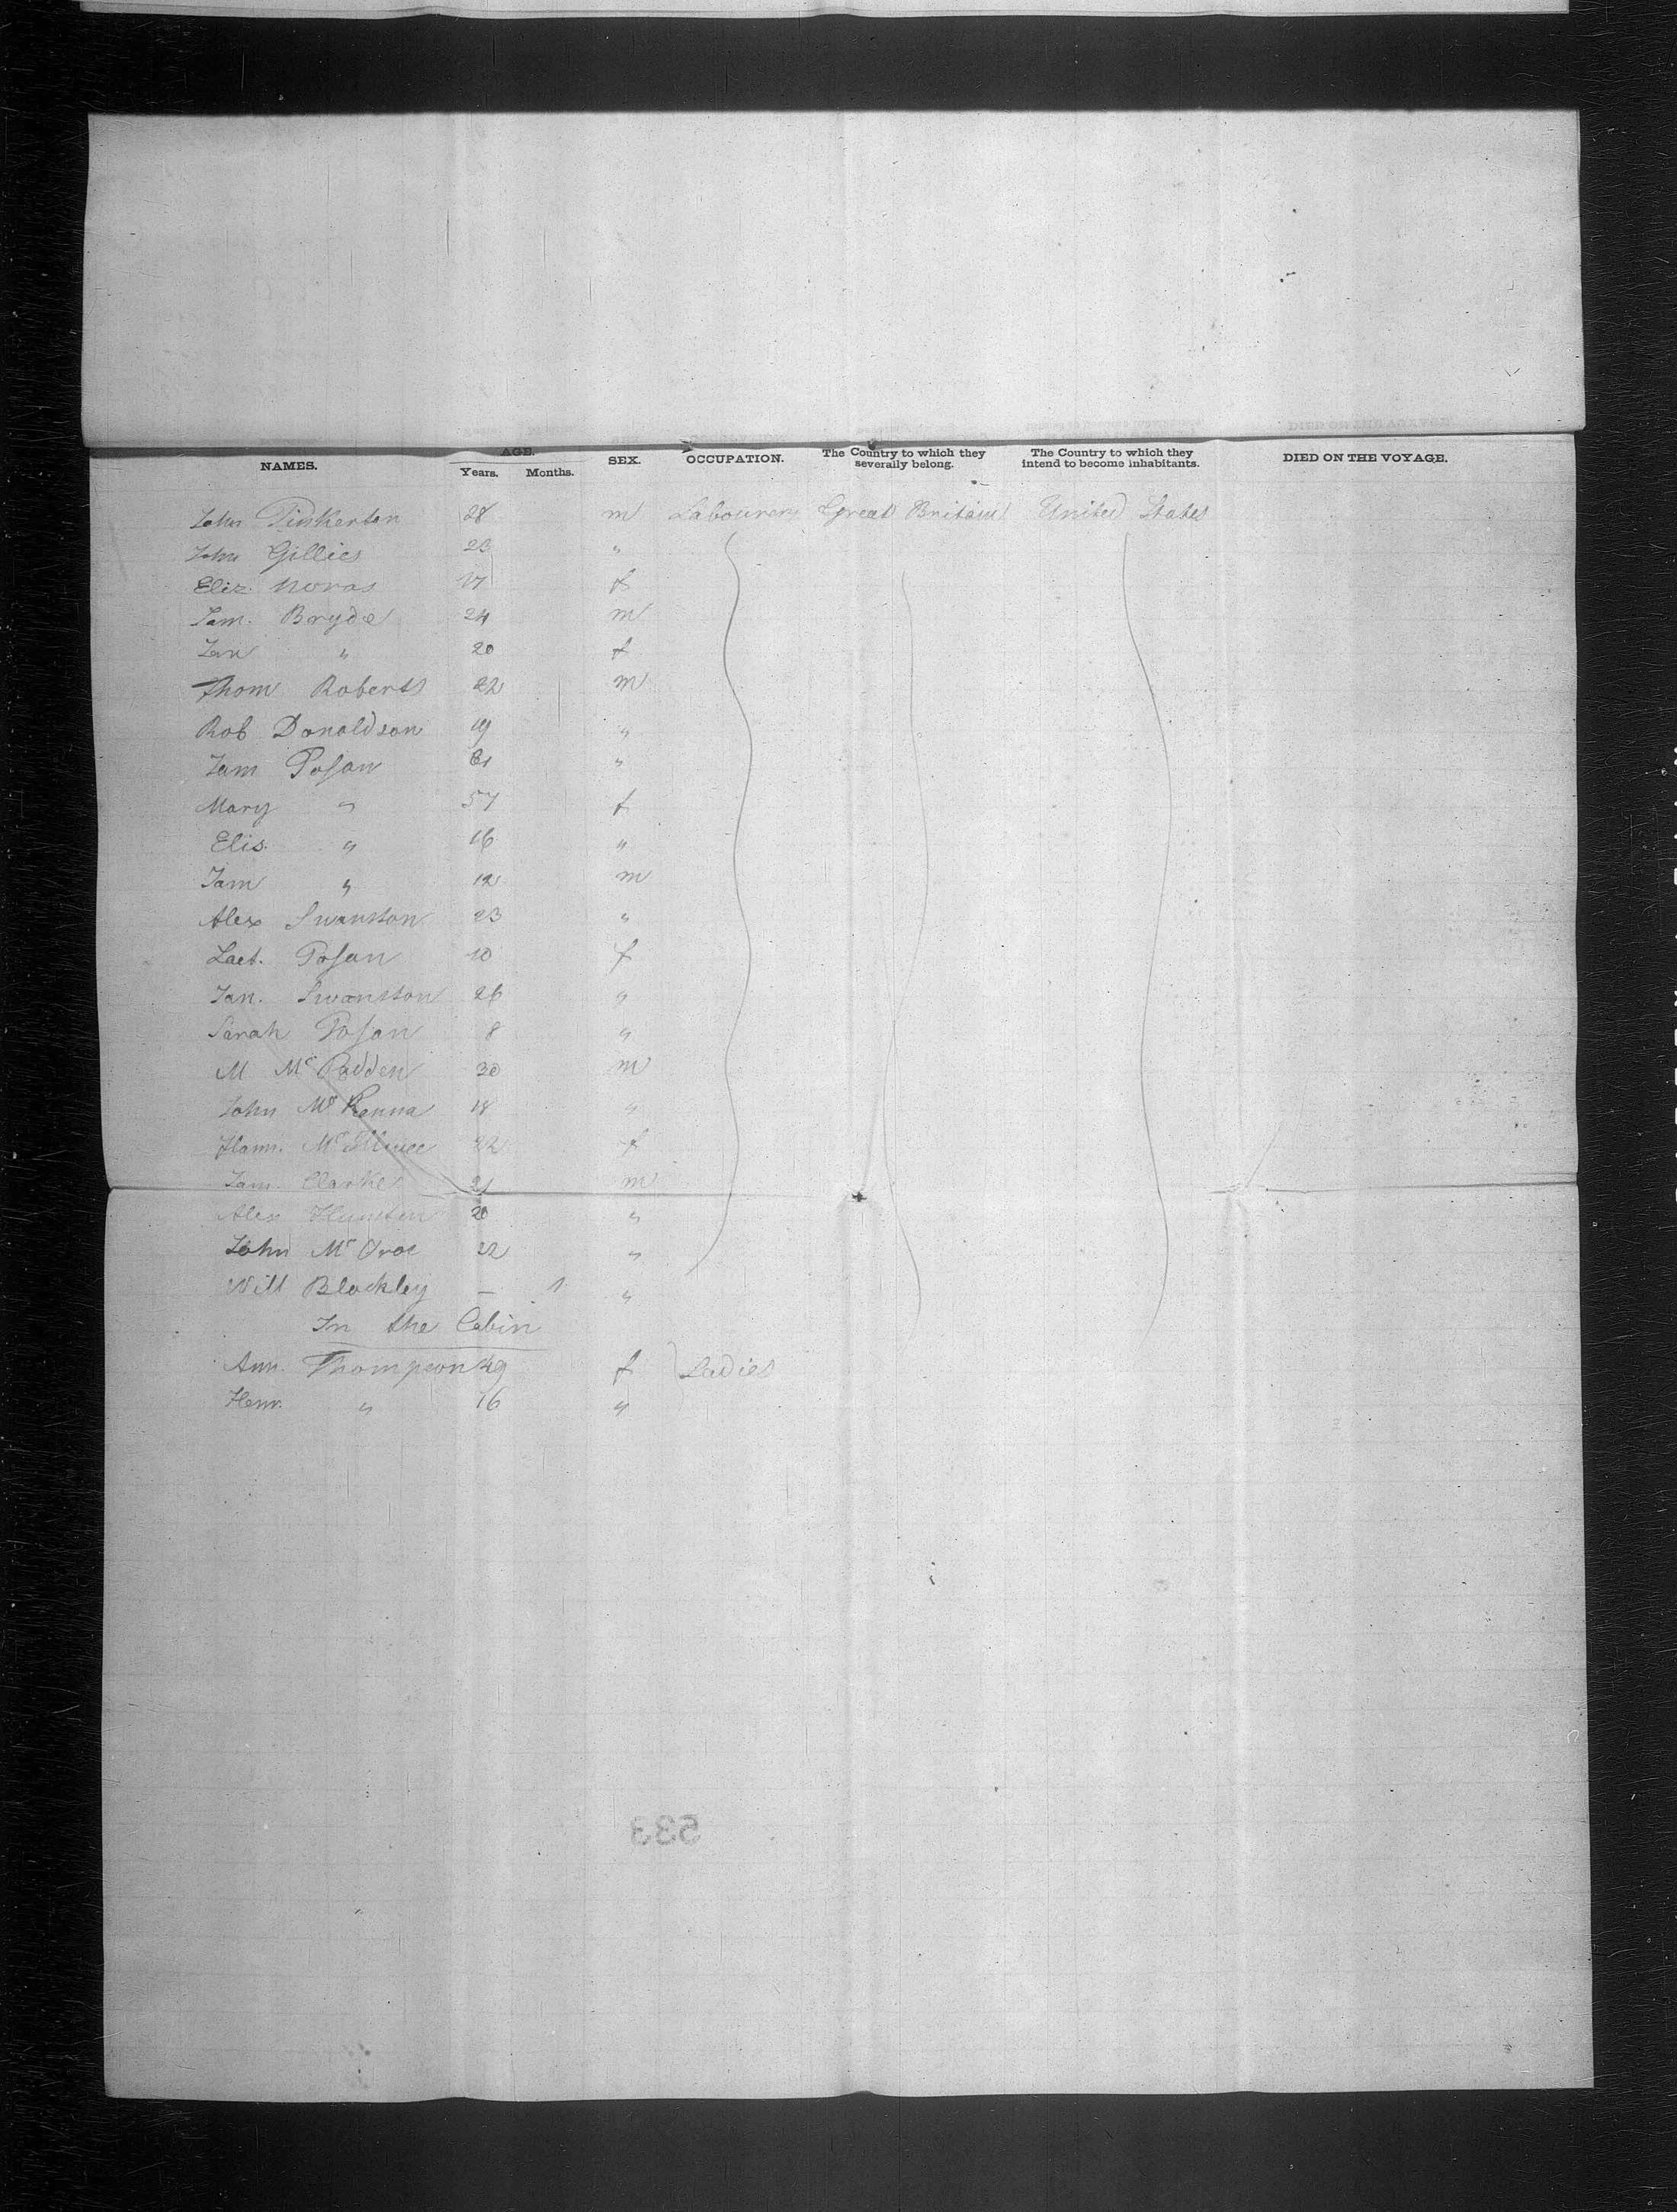 NAMES. AGE. Years. Months. SEX. OCCUPATION. The Country to which they severally belong. The Country to which they intend to become inhabitants. DIED ON THE VOYAGE.
John Pinkerton 28 m Labourers Great Britain United States
John Gillies 23 "
Eliz. Moras 17 f
Jam. Bryde 24 m
Jan " 20 f
Thom Roberts 22 m
Rob Donaldson 19 "
Jam 61 "
Mary " 57 f
Elis. " 16 "
Jam " 12 m
Alex Swanston 23 "
Laet. 10 f
Jan. Swanston 26 "
Sarah 8 "
M Mc Padden 30 m
John Mc Kenna 18 "
Hann. 22 f
Jam. Clarke 21 m
Alex 20 "
John 22 "
Will Blackley — 1 "
In the Cabin
Ann. Thompson 49 f Ladies
Henr. " 16 "
533